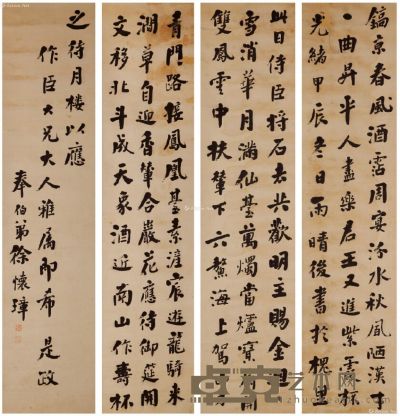 鎬京春風酒霑周宴汾水秋風陋漢才
一曲昇平人盡樂君王又進紫霞杯
光緒甲辰冬日雨晴後書於槐
此日侍臣將石去共歡明主賜金
雪消華月滿仙臺萬燭當爐寶
雙鳳雲中扶輦下六鰲海上駕
青門路接鳳凰臺素滻宸遊龍騎來
澗草自迎香輦合巖花應待御筵開
文移北斗成天象酒近南山作壽杯
之待月樓以應
作臣大兄大人雅屬即希是政
奉伯弟徐懷璋